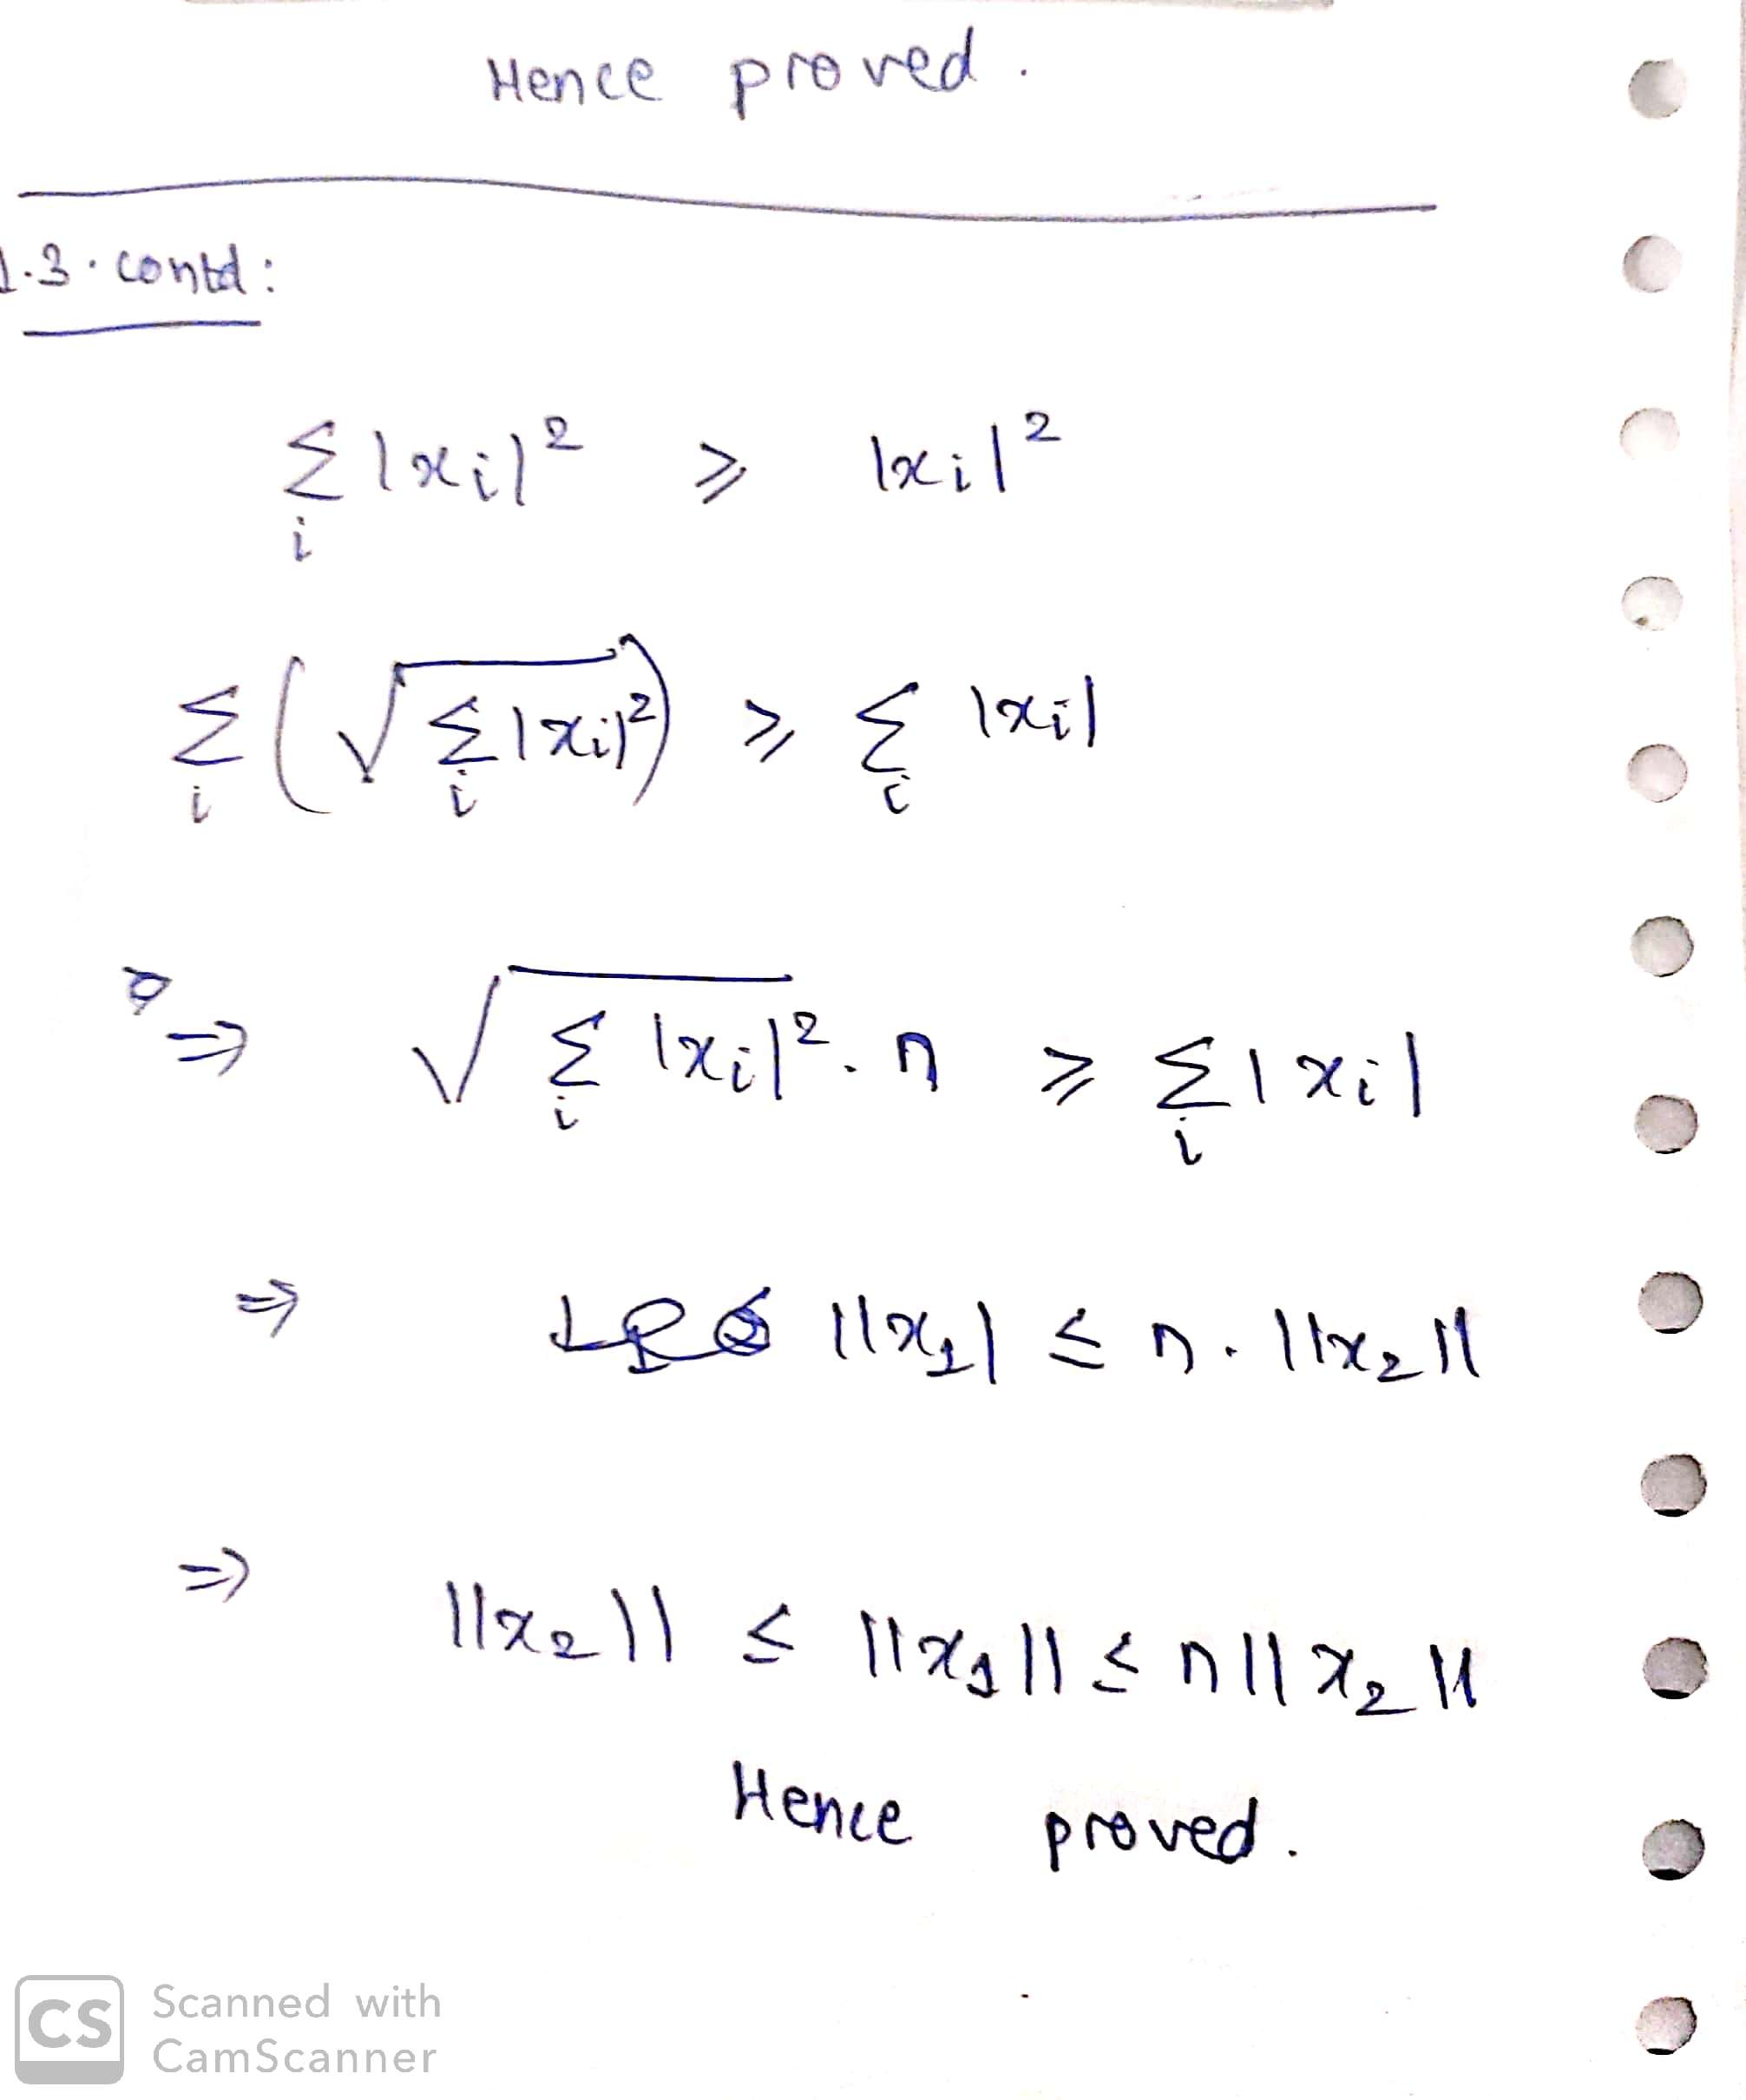 Hence proved.
1.3. contd:
Σ_i |x_i|² ≥ |x_i|²
Σ_i (√(Σ_i |x_i|²)) ≥ Σ_i |x_i|
⇒ √(Σ_i |x_i|²) . n ≥ Σ_i |x_i|
⇒ ||x_1| ≤ n. ||x_2||
⇒ ||x_2|| ≤ ||x_1|| ≤ n||x_2||
Hence proved.
CS Scanned with
CamScanner